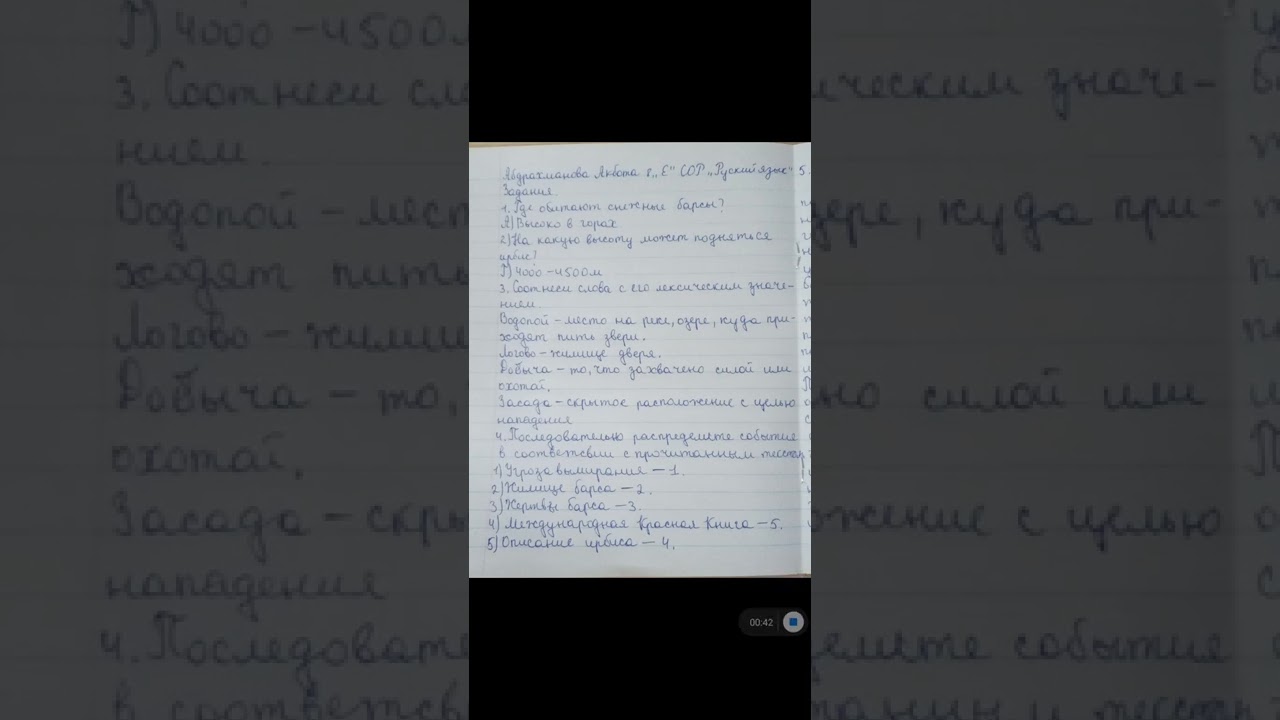 Абдрахманова Акбота 8 „Е" СОР „Руский язык"
Задания.
1. Где обитают снежные барсы?
А) Высоко в горах.
2) На какую высоту может подняться
ирбис?
Г) 4000-4500м
3. Соотнеси слова с его лексическим значе-
нием.
Водопой - место на реке, озере, куда при-
ходят пить звери.
Логово - жилище дверя.
Добыча - то, что захвачено силой или
охотай.
Засада - скрытое расположение с целью
нападения
4. Последовательно распределете событие
в соответсвии с прочитанным тексту
1) Угроза вымирания - 1.
2) Жилище барса - 2.
3) Жертвы барса - 3.
4) Международная Красная Книга - 5.
5) Описание ирбиса - 4.
00:42